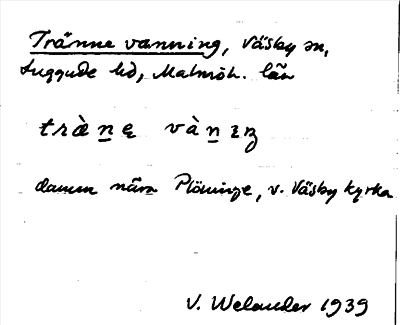 Tränne vanning, Väsby sn,
Luggude hd, Malmöh. län
tràn̲ę vàn̲ıŋ
dammen nära Plöninge, v. Väsby kyrka
V. Welander 1939